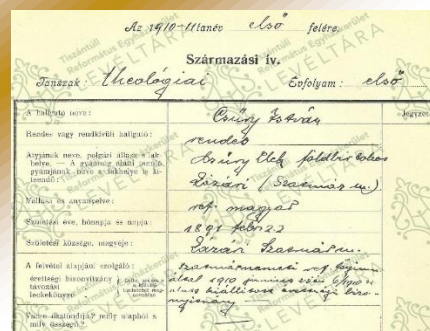 Az 1910-11 tanév első felére.
Származási ív.
Tanszak: theológiai Évfolyam: első
A hallgató neve: Csűry István Jegyzet
Rendes vagy rendkívüli hallgató: rendes
Atyjának neve, polgári állása s lakhelye. — A gyámság alatti tanuló gyámjának neve s lakhelye is kiteendő: Csűry Elek földbirtokos
Lázári (Szatmár m.)
Vallása és anyanyelve: ref. magyar
Születési éve, hónapja és napja: 1891 febr. 22
Születési községe, megyéje: Lázári Szatmár m.
A felvétel alapjául szolgáló: Szatmárnémeti ref. főgimn.
érettségi bizonyítvány által 1910 június
távozási kiállított érettségi bizo-
leckekönyv nyítvány
Tiszántúli Református Egyházkerület
LEVÉLTÁRA